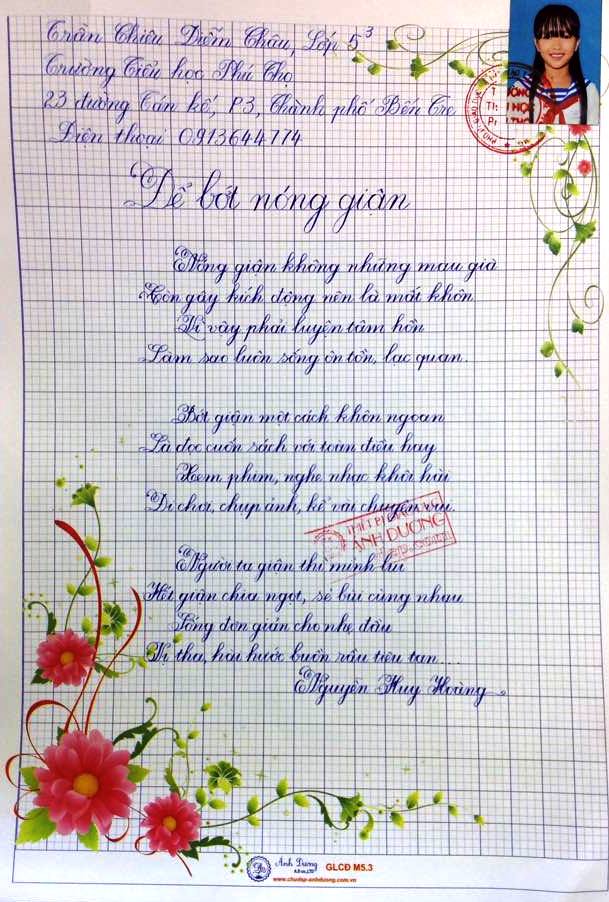 Trần Thiều Diễm Châu, Lớp 5³
Trường Tiểu học Phú Thọ
23 đường Tán kế, P3, Thành phố Bến Tre
Điện thoại 0913644774
Để bớt nóng giận
Nóng giận không những mau già
Còn gây kích động nên là mất khôn
Vì vậy phải luyện tâm hồn
Làm sao luôn sống ôn tồn, lạc quan.
Bớt giận một cách khôn ngoan
Là đọc cuốn sách với toàn điều hay
Xem phim, nghe nhạc khôi hài
Đi chơi, chụp ảnh, kể vài chuyện vui.
ÁNH DƯƠNG
Người ta giận thì mình lui
Hết giận chia ngọt, sẻ bùi cùng nhau
Sống đơn giản cho nhẹ đầu
Vị tha, hài hước buồn rầu tiêu tan...
Nguyễn Huy Hoàng
Ánh Dương
GLCĐ M5.3
www.chudep-anhduong.com.vn